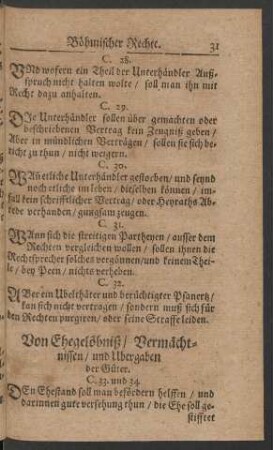 Böhmischer Rechte. 31
C. 28.
UNd wofern ein Theil der Unterhändler Auß-
spruch nicht halten wolte / soll man ihn mit
Recht dazu anhalten.
C. 29.
DIe Unterhändler sollen über gemachten oder
beschriebenen Vertrag kein Zeugniß geben /
Aber in mündlichen Verträgen / sollen sie sich
nicht zu thun / nicht weigern.
C. 30.
WAñ etliche Unterhändler gestorben / und seynd
noch etliche im leben / dieselben können / im-
fall kein schrifftlicher Vertrag / oder Heyraths Ab-
rede verhanden / gungsam zeugen.
C. 31.
WAnn sich die streitigen Partheyen / ausser dem
Rechten vergleichen wollen / sollen ihnen die
Rechtsprecher solches vergönnen / und keinem Thei-
le / bey Peen / nichts verheben.
C. 32.
ABer ein Ubelthäter und berüchtigter
kan sich nicht vertragen / sondern muß sich für
den Rechten purgiren / oder seine Straffe leiden.
Von Ehegelöbniß / Vermächt-
nissen / und Ubergaben
der Güter.
C. 33. und 34.
DEn Ehestand soll man befördern helffen / und
darinnen gute versehung thun / die Ehe soll ge-
stifftet